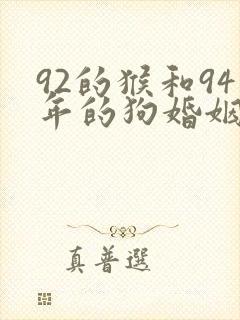 92的猴和94
年的狗婚姻
真普選